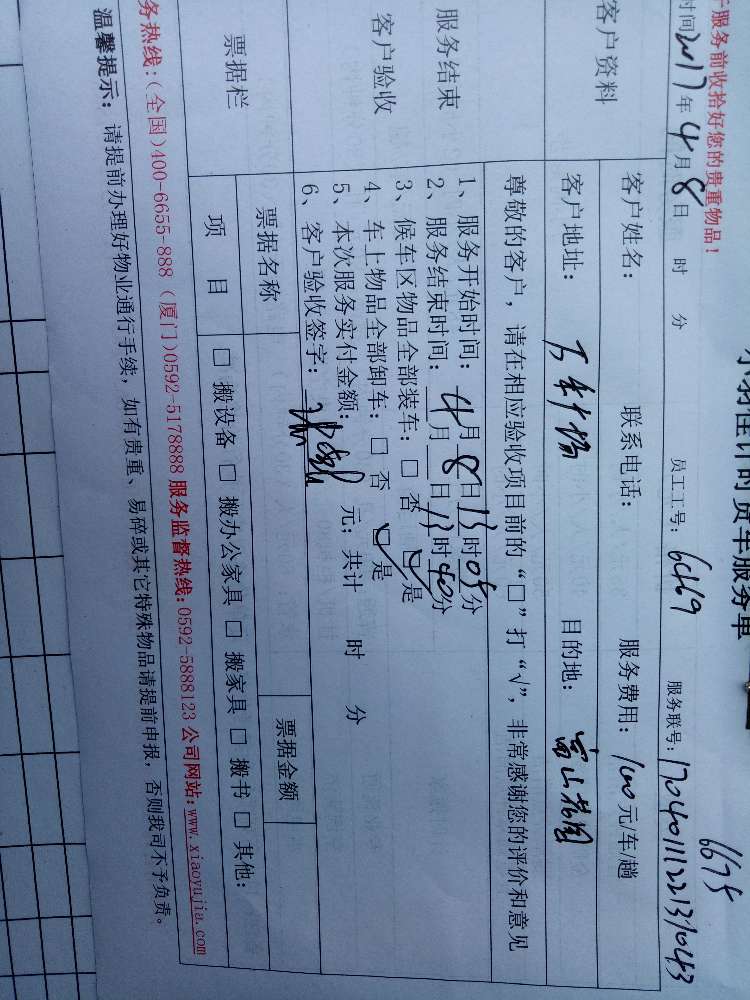 服务前收拾好您的贵重物品!
6675
时间2017年4月8日 时 分 员工工号: 6469 服务联号:
客户资料 客户姓名: 联系电话: 服务费用: 100元/车/趟
客户地址: 目的地: 富山花园
尊敬的客户，请在相应验收项目前的“□”打“√”，非常感谢您的评价和意见
服务结束
客户验收
1、服务开始时间: 4月8日13时05分
2、服务结束时间: 月 日13时40分
3、候车区物品全部装车: □ 否 ☑ 是
4、车上物品全部卸车: □ 否 ☑ 是
5、本次服务实付金额: 元; 共计 时 分
6、客户验收签字:
票据栏 票据名称 票据金额
项 目 □ 搬设备 □ 搬办公家具 □ 搬家具 □ 搬书 □ 其他:
务热线:(全国)400-6655-888 (厦门)0592-5178888 服务监督热线:0592-5888123 公司网站:www.xiaoyujia.com
温馨提示: 请提前办理好物业通行手续，如有贵重、易碎或其它特殊物品请提前申报，否则我司不予负责。